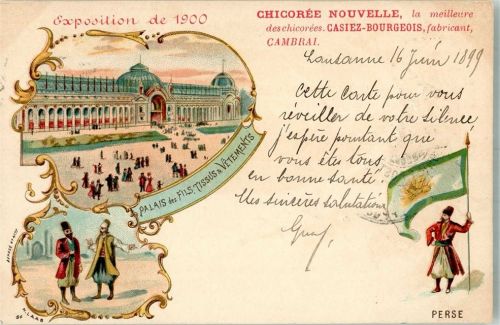 Exposition de 1900
CHICORÉE NOUVELLE, la meilleure
des chicorées. CASIEZ-BOURGEOIS, fabricant,
CAMBRAI.
Lausanne 16 Juin 1899
Cette carte pour vous
réveiller de votre silence
j'espère pourtant que
vous êtes tous
en bonne santé.
Mes sincères salutations
PALAIS des FILS, TISSUS & VÊTEMENTS
PERSE